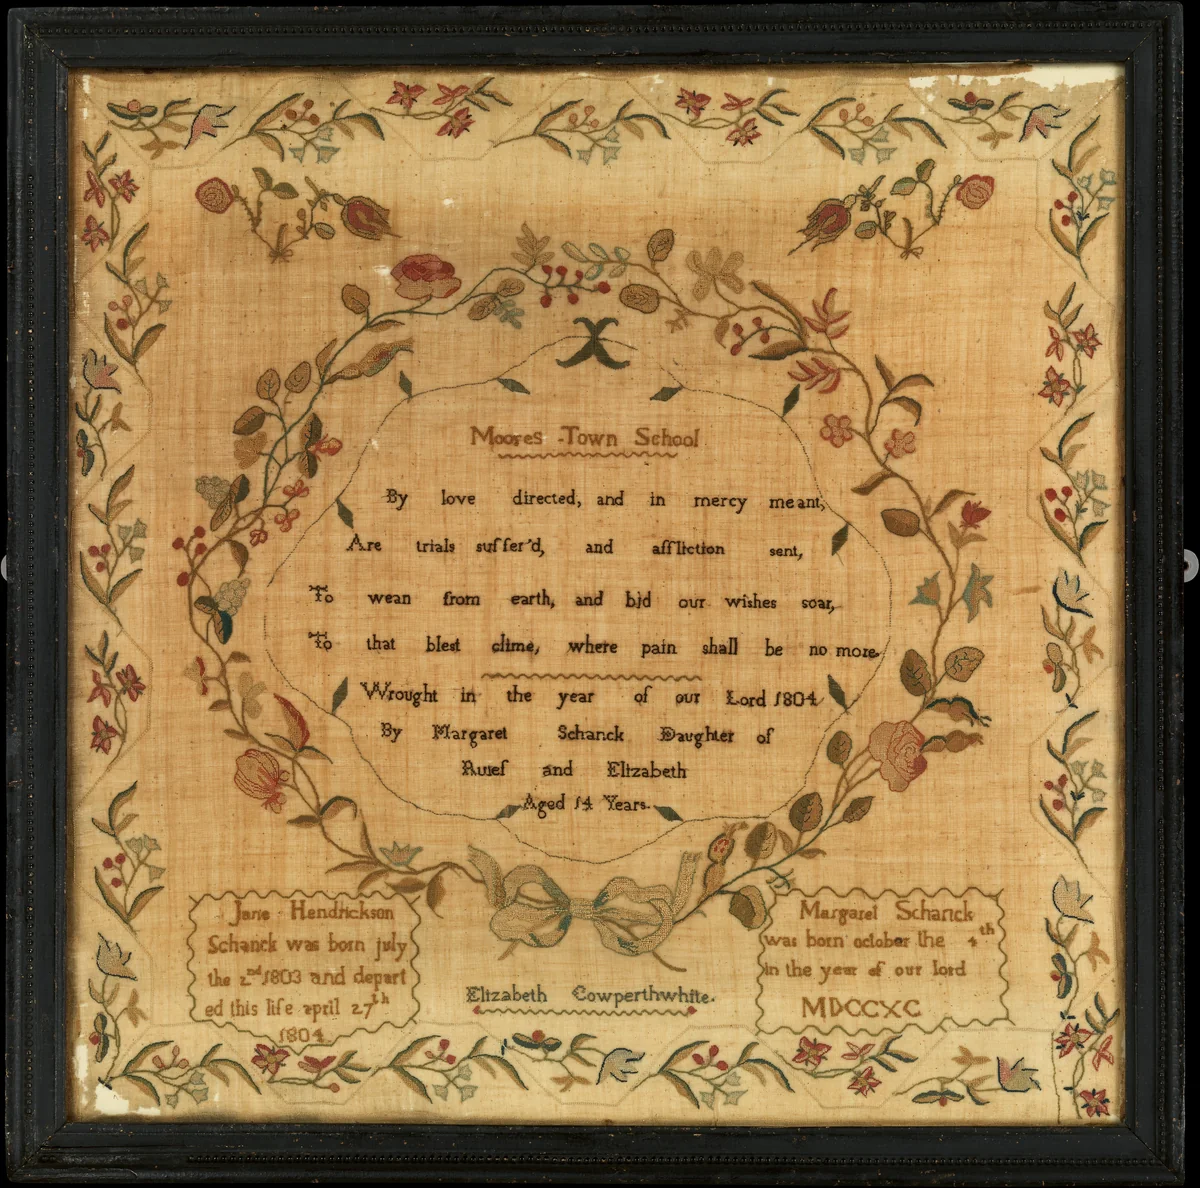 Moores Town School
By love directed, and in mercy meant,
Are trials suffer'd, and affliction sent,
To wean from earth, and bid our wishes soar,
To that blest clime, where pain shall be no more.
Wrought in the year of our Lord 1804
By Margaret Schanck Daughter of
Rulef and Elizabeth
Aged 14 Years.
Jane Hendrickson
Schanck was born july
the 2nd 1803 and depart
ed this life april 27th
1804
Elizabeth Cowperthwhite.
Margaret Schanck
was born october the 4th
in the year of our lord
MDCCXC